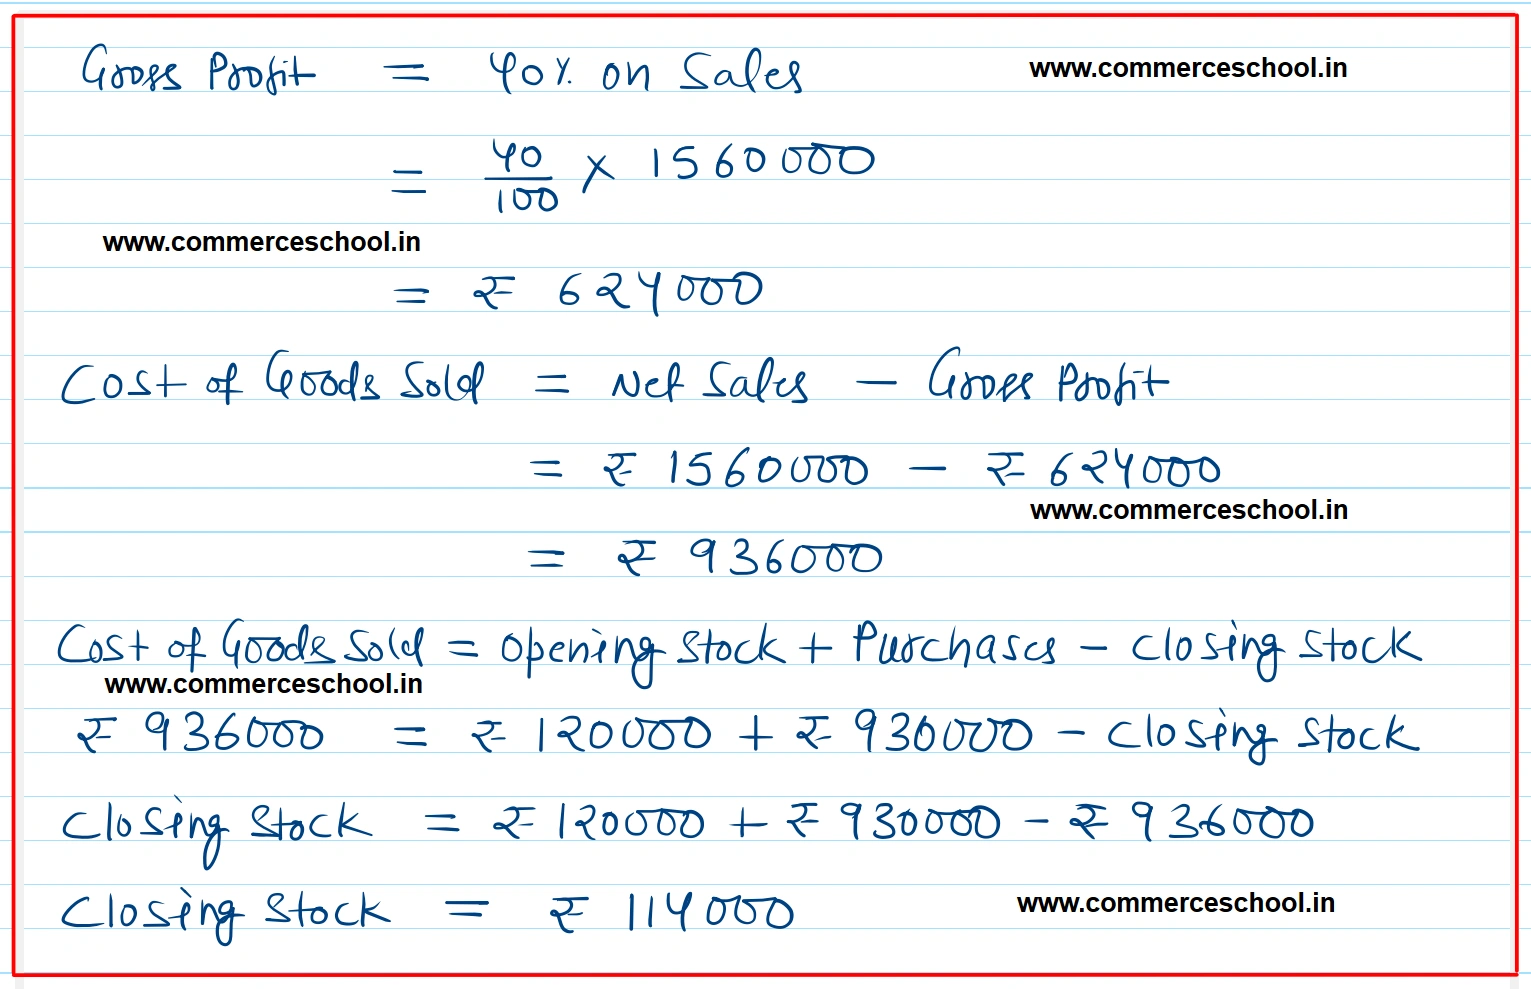 Gross Profit = 40% on Sales www.commerceschool.in
= 40/100 × 1560000
www.commerceschool.in
= ₹ 624000
Cost of Goods Sold = Net Sales – Gross Profit
= ₹ 1560000 – ₹ 624000
www.commerceschool.in
= ₹ 936000
Cost of Goods Sold = Opening Stock + Purchases – Closing Stock
www.commerceschool.in
₹ 936000 = ₹ 120000 + ₹ 930000 – Closing Stock
Closing Stock = ₹ 120000 + ₹ 930000 – ₹ 936000
Closing Stock = ₹ 114000 www.commerceschool.in